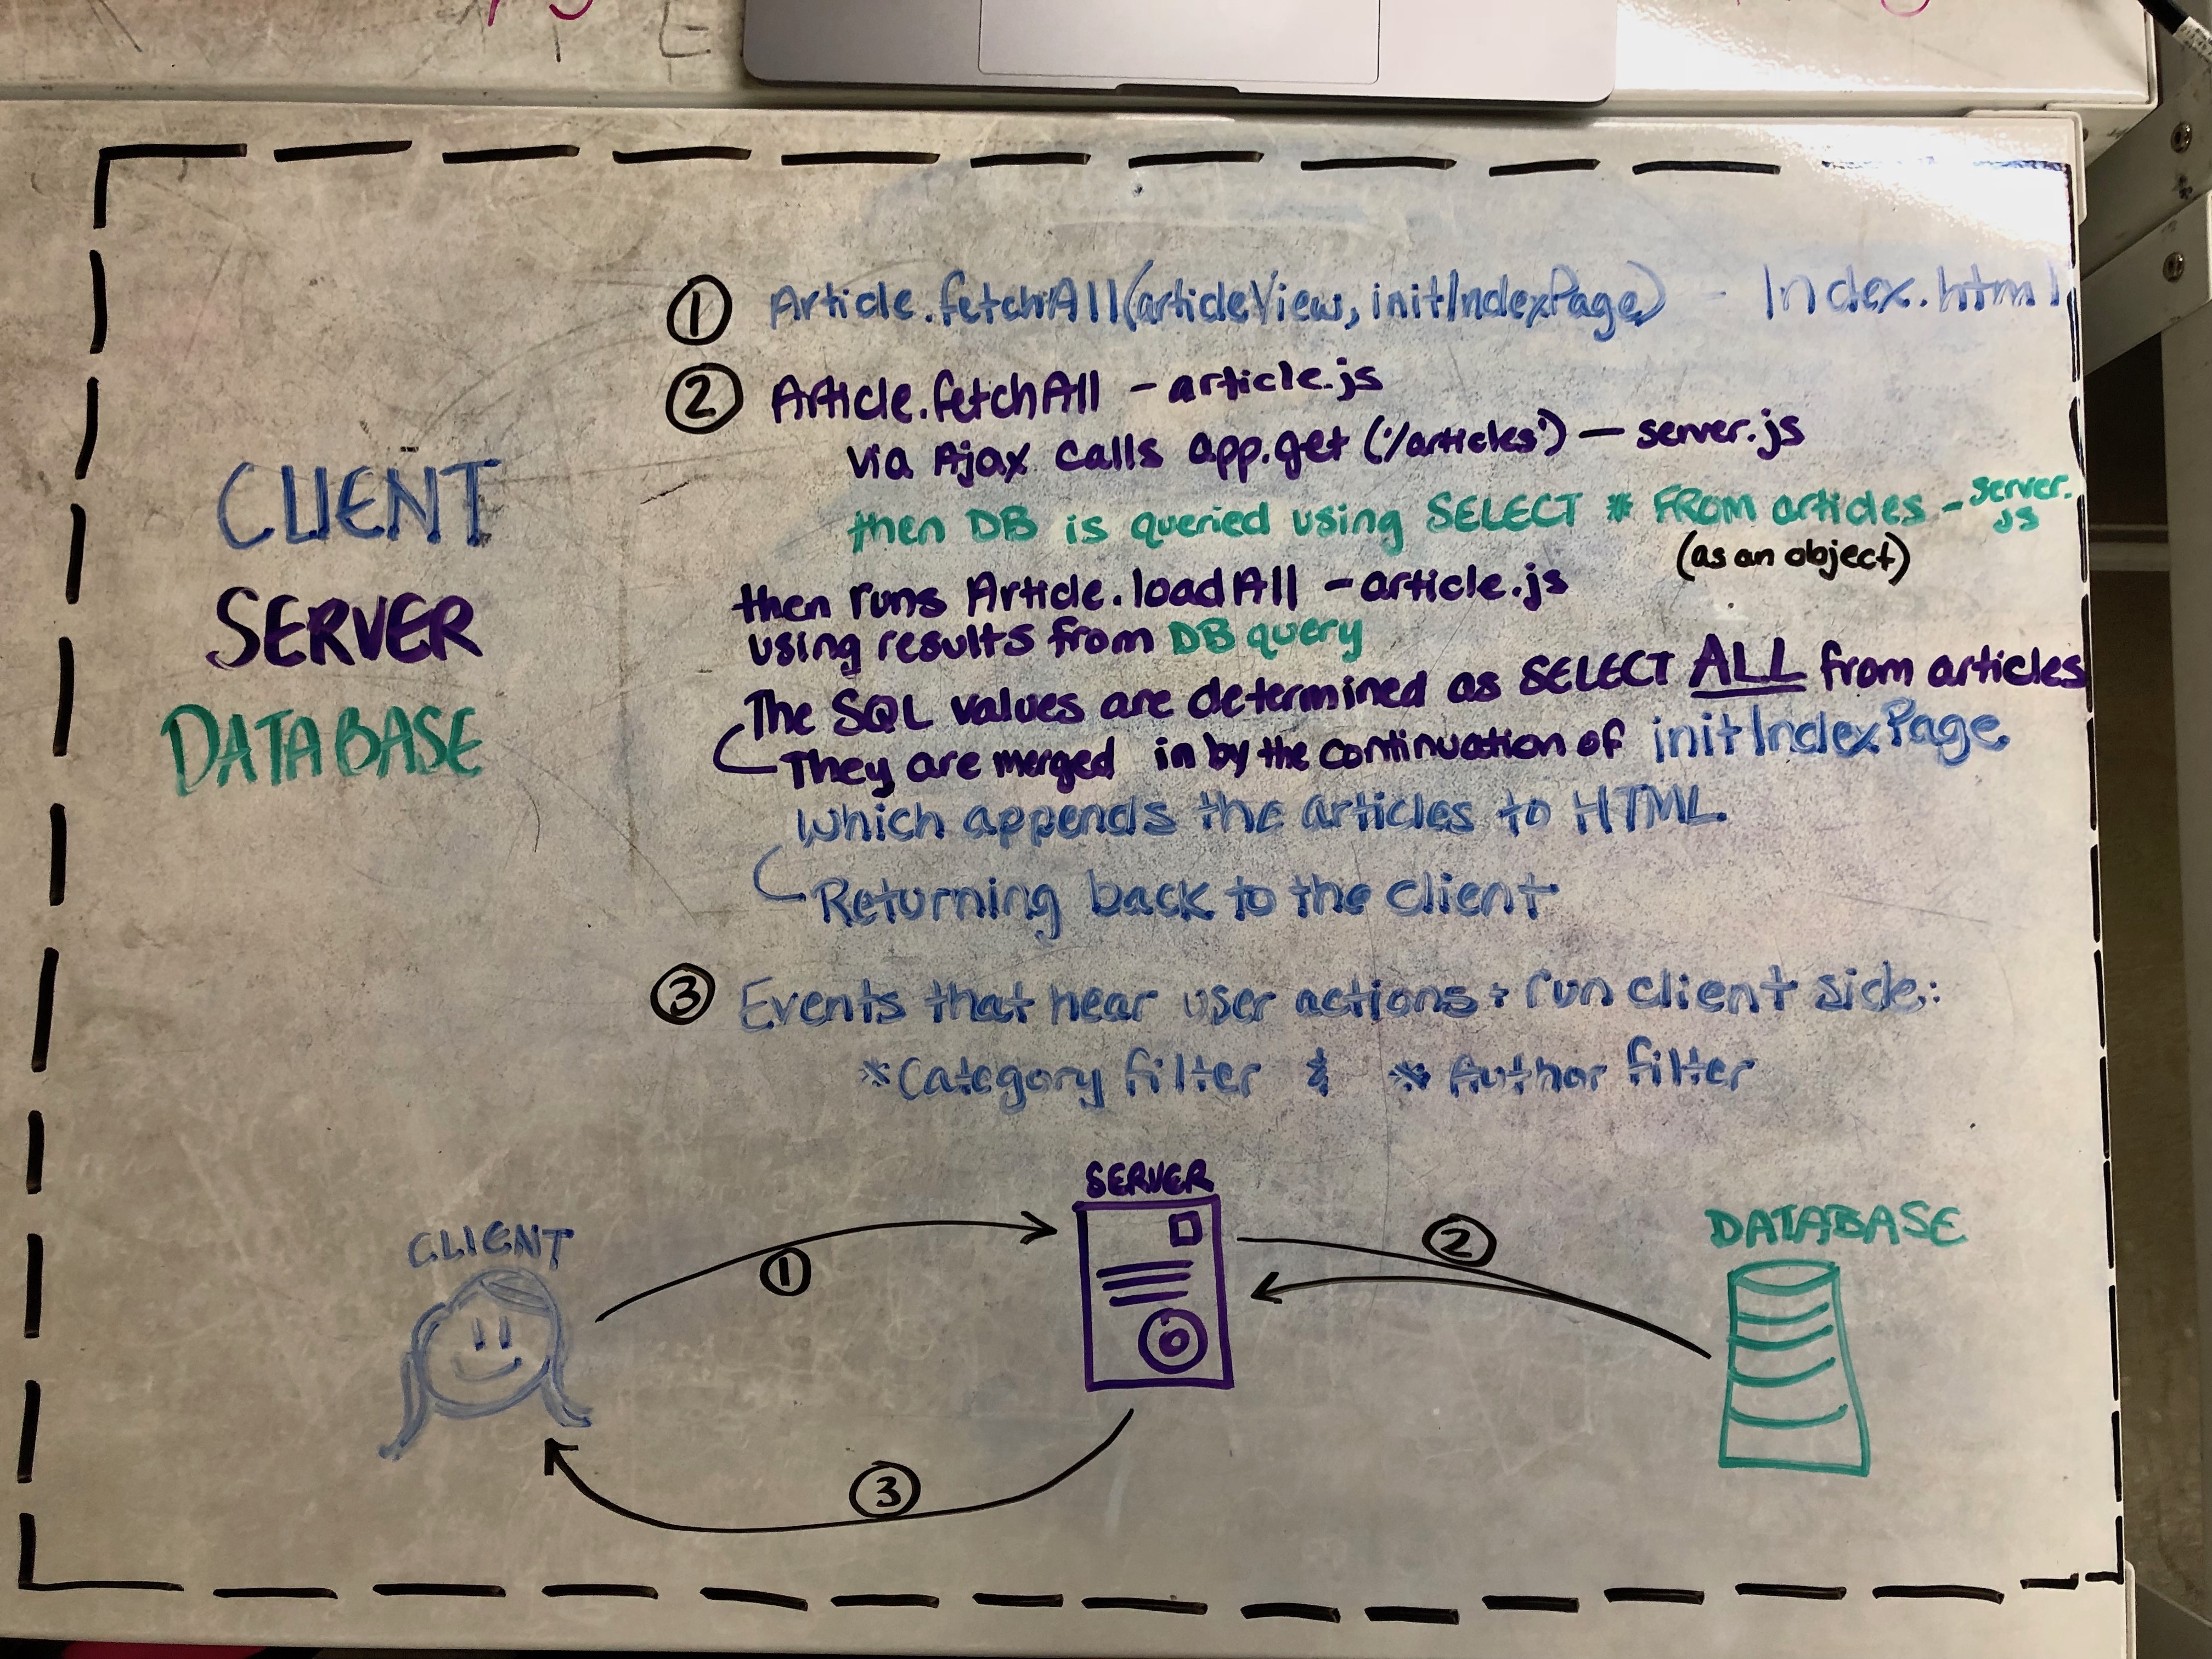 E
① Article.fetchAll(articleView, initIndexPage) - Index.html
② Article.fetchAll - article.js
via Ajax calls app.get('/articles') — server.js
then DB is queried using SELECT * FROM articles - server.js
(as an object)
CLIENT
SERVER
DATABASE
then runs Article.loadAll - article.js
using results from DB query
The SQL values are determined as SELECT ALL from articles
They are merged in by the continuation of initIndexPage,
which appends the articles to HTML.
Returning back to the client
③ Events that hear user actions + run client side:
*Category filter & * Author filter
SERVER
CLIENT
DATABASE
①
②
③